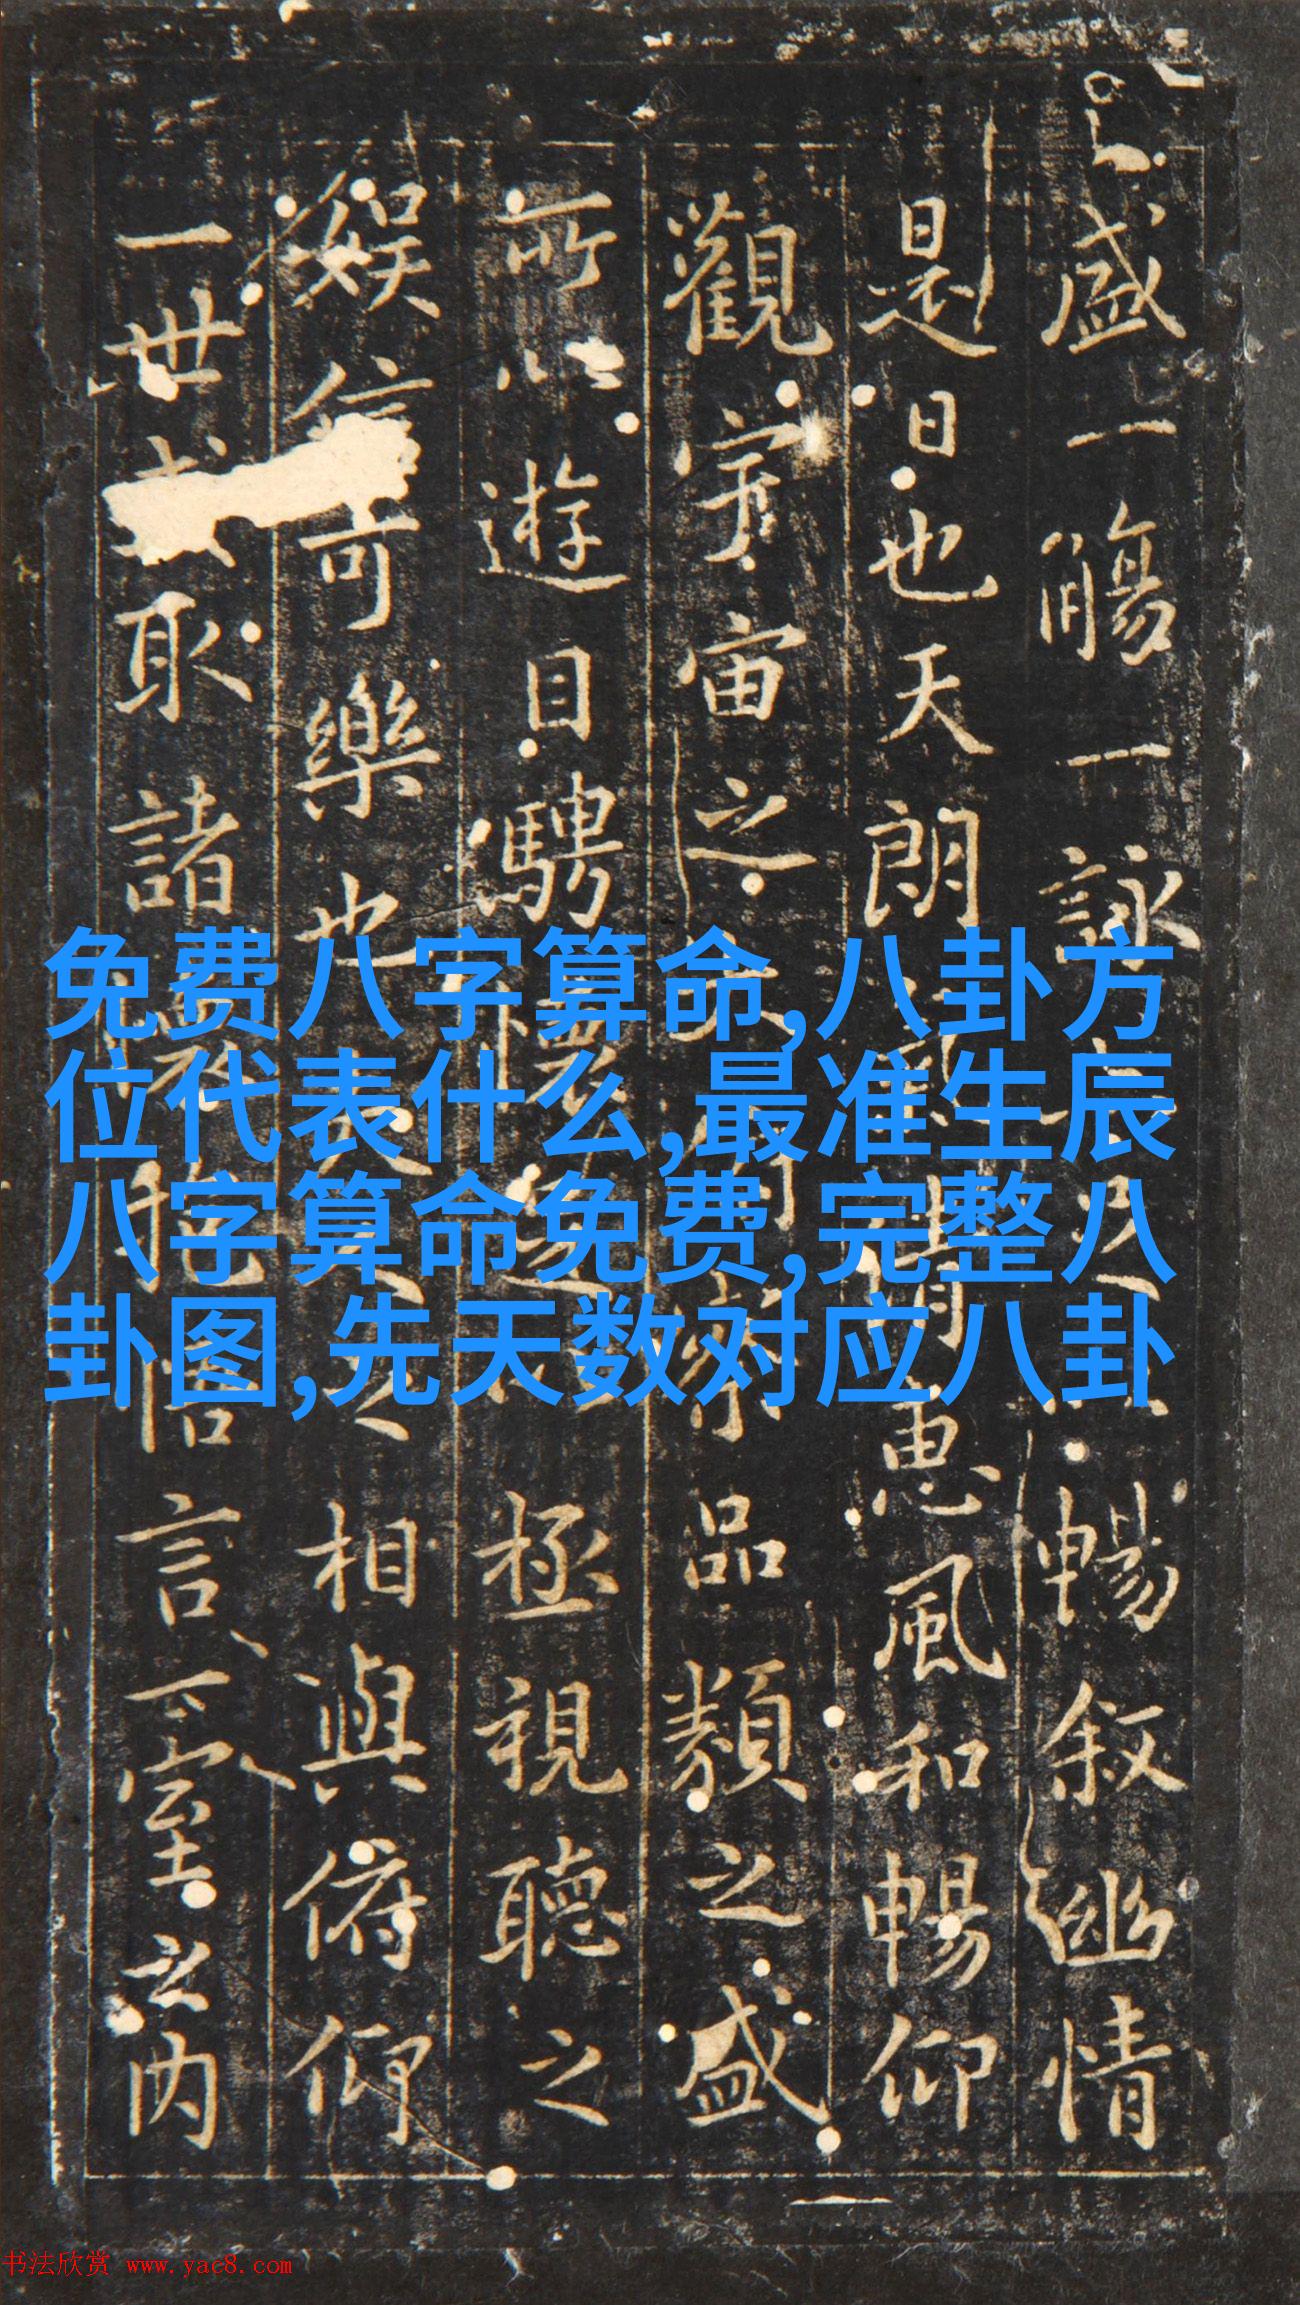 盛一觴一詠暢叙幽情
是日也天朗清惠風和暢仰
觀宇宙之察品類之盛
所以遊目騁懷極視聽之
娱信可樂也夫之相與俯仰
一世或取諸悟言一室之内
免费八字算命,八卦方
位代表什么,最准生辰
八字算命免费,完整八
卦图,先天数对应八卦
书法欣赏 www.yac8.com